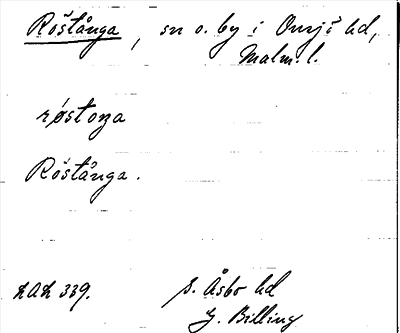 Röstånga, sn o. by i Onsjö hd,
Malm. l.
røstoŋa
Röstånga.
LAL 339.
S. Åsbo hd
G. Billing